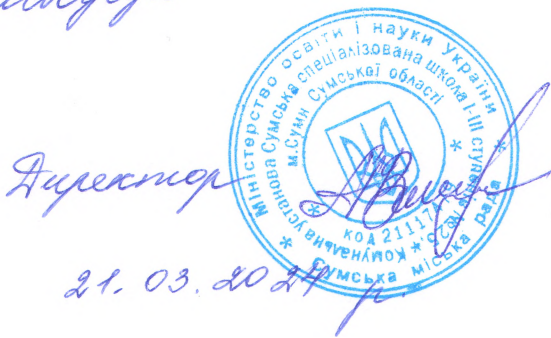 Директор
Міністерство освіти і науки України
Сумська міська рада
Комунальна установа Сумська спеціалізована школа І-ІІІ ступенів
м.Суми Сумської області
код 21117
21. 03. 2024 р.